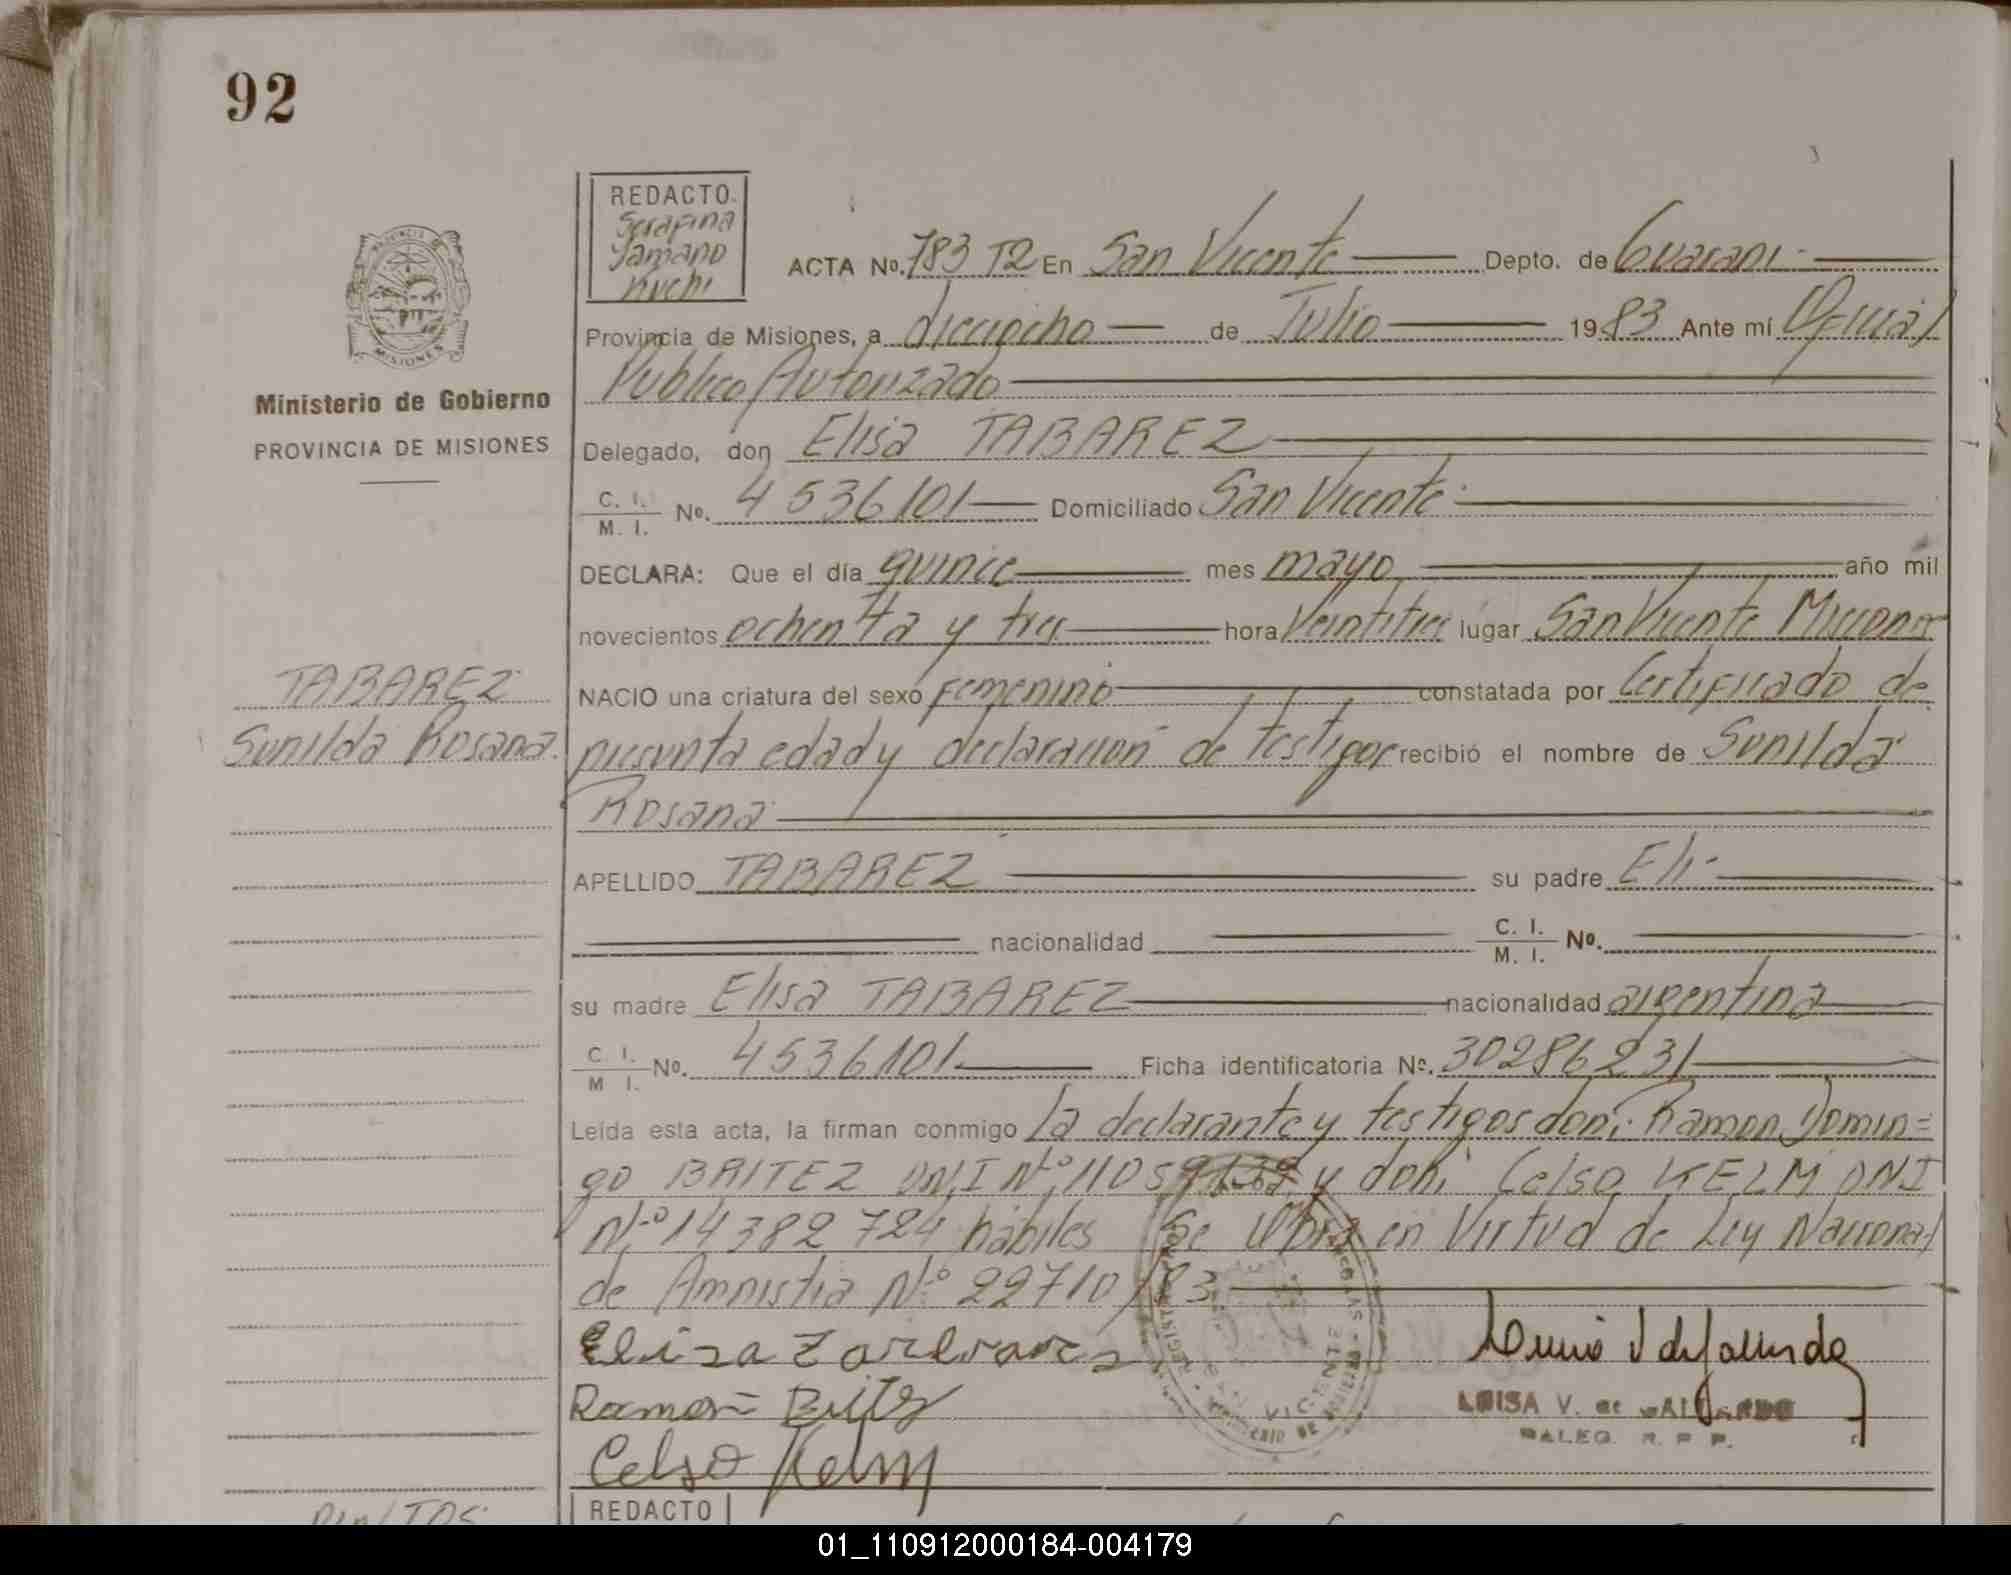 92
REDACTO.
Serafina
Yamano
Kuchi
ACTA No. 783 T2 En San Vicente Depto. de Guarani
Provincia de Misiones, a dieciocho de Julio 1983 Ante mí Oficial
Publico Autorizado
PROVINCIA DE
MISIONES
Ministerio de Gobierno
PROVINCIA DE MISIONES
Delegado, don Elisa TABAREZ
C. I.
M. I. No. 4536101 Domiciliado San Vicente
DECLARA: Que el día quince mes mayo año mil
novecientos ochenta y tres hora Veintitres lugar San Vicente Misiones
TABAREZ
Sunilda Rosana.
NACIO una criatura del sexo femenino constatada por Certificado de
presunta edad y declaracion de testigos recibió el nombre de Sunilda
Rosana
APELLIDO TABAREZ su padre El
nacionalidad C. I.
M. I. No.
su madre Elisa TABAREZ nacionalidad argentina
C. I.
M. I. No. 4536101 Ficha identificatoria No. 30286231
Leída esta acta, la firman conmigo la declarante y testigos don: Ramon Domin=
go BRITEZ DNI Nº 11059139 y don: Celso KELM DNI
Nº 14382724 habiles Se labra en Virtud de Ley Nacional
de Amnistia Nº 22710/83
Ramon Britez
Celso Kelm
LUISA V. de GALLARDO
DALEG. R. P. P.
SAN VICENTE
REDACTO
01_110912000184-004179